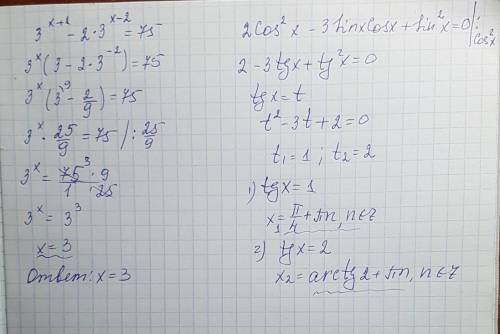 3^(x+1) − 2·3^(x−2) = 75
3^x (3 − 2·3^(−2)) = 75
3^x (3^9 − 2/9) = 75
3^x · 25/9 = 75 | : 25/9
3^x = 75^3 · 9 / 1 · 25
3^x = 3^3
x = 3
Ответ: x = 3
2cos²x − 3sinxcosx + sin²x = 0 | : cos²x
2 − 3tgx + tg²x = 0
tgx = t
t² − 3t + 2 = 0
t₁ = 1 ; t₂ = 2
1) tgx = 1
x₁ = π/4 + πn, n∈Z
2) tgx = 2
x₂ = arctg2 + πn, n∈Z